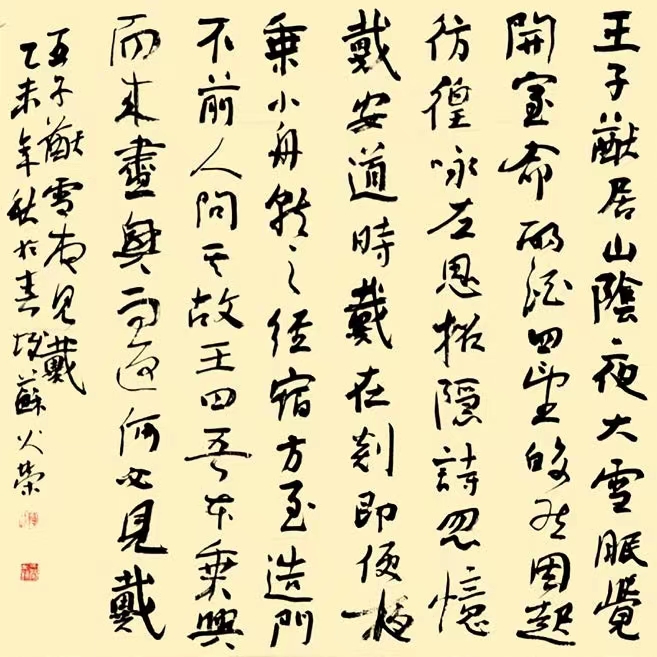 王子猷居山陰夜大雪眠覺
開室命酌酒四望皎然因起
彷徨咏左思招隱詩忽憶
戴安道時戴在剡即便夜
乘小舟就之經宿方至造門
不前人問其故王曰吾本乘興
而來盡興而返何必見戴
王子猷雪夜見戴
乙未年秋於蘇火榮